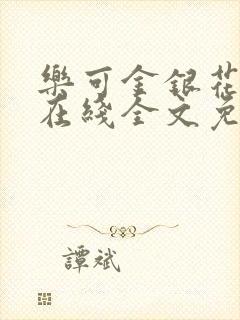 樂可金銀花
在綫全文免
譚斌